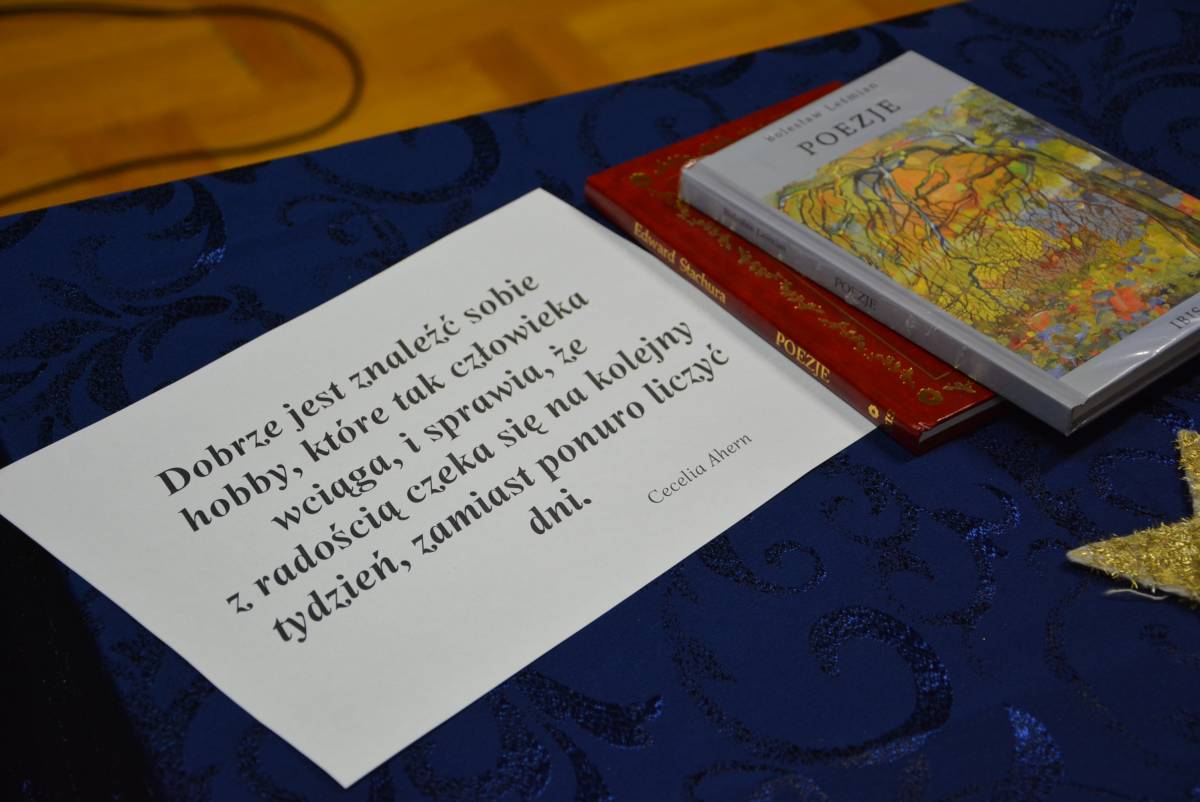 Dobrze jest znaleźć sobie
hobby, które tak człowieka
wciąga, i sprawia, że
z radością czeka się na kolejny
tydzień, zamiast ponuro liczyć
dni.
Cecelia Ahern
Edward Stachura
POEZJE
Bolesław Leśmian
POEZJE
Bolesław Leśmian
POEZJE
IBIS